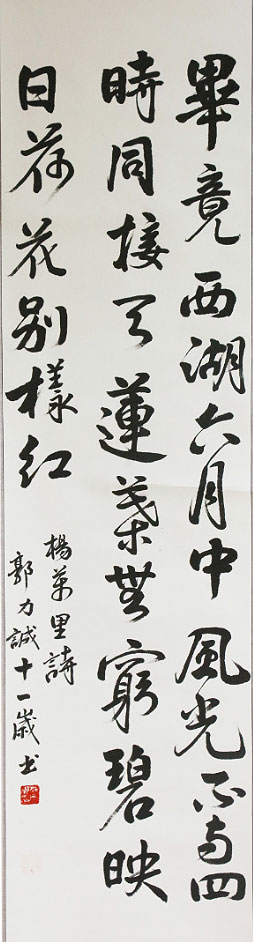 畢竟西湖六月中風光不與四
時同接天蓮葉無窮碧映
日荷花別樣紅
楊萬里詩
郭力誠十一歲書